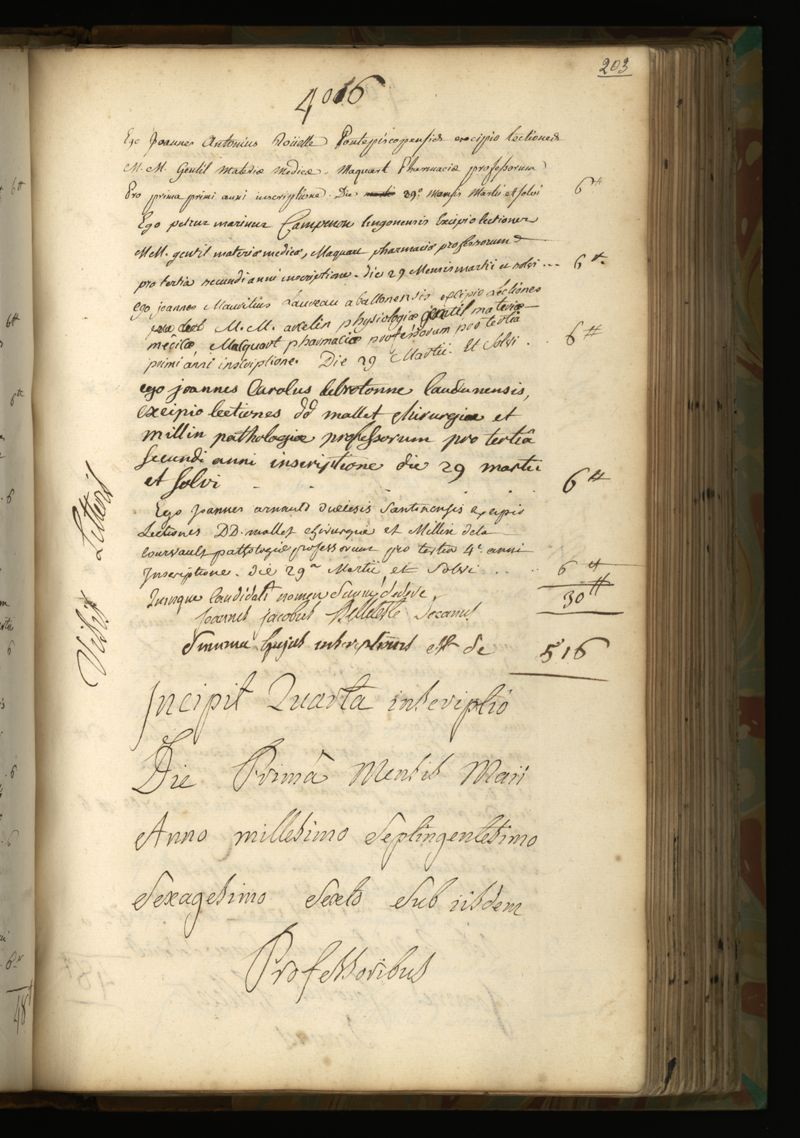 203
4016
Ego Joannes Antonius Excipio lectiones
M.M. Gentil materiæ medicæ. Maquart Pharmaciæ professorum
Pro prima primi anni inscriptione. Die 29ª Mensis Martii et solvi 6 ₶
Ego petrus marinus Campenon lingonensis Excipio lectiones
M.M. gentil materiæ medicæ, Maquart pharmaciæ professorum
pro tertia secundi anni inscriptione. die 29 Mensis martii et solvi ... 6 ₶
ego joannes Laureau aballonensis excipio lectiones
M.M. physiologiæ gentil materiæ
medicæ Macquart pharmaciæ professorum pro tertiâ
primi anni inscriptione. Die 29 Martii. Et Solvi . 6 ₶
ego joannes Carolus lebrotonne laudunensis,
excipio lectiones dd mallet chirurgiæ et
millin pathologiæ professorum pro tertiâ
secundi anni inscriptione die 29 martii
et solvi 6 ₶
Ego Joannes arnauld Santonensis excipio
Lectiones DD. mallet chirurgiæ et Millin dela
courvault pathologiæ professorum pro tertia 4i anni
Inscriptione. die 29ª Martii et Solvi .. 6 ₶
quinque candidati nomen suum dedere 30 ₶
joannes jacobus Belleteste Decanus
Summa hujus inscriptionis est de 516
Visis Litteris
Incipit Quarta inscriptio
Die Primâ Mensis Maii
Anno millesimo Septingentesimo
Sexagesimo Sexto Sub iisdem
Professoribus